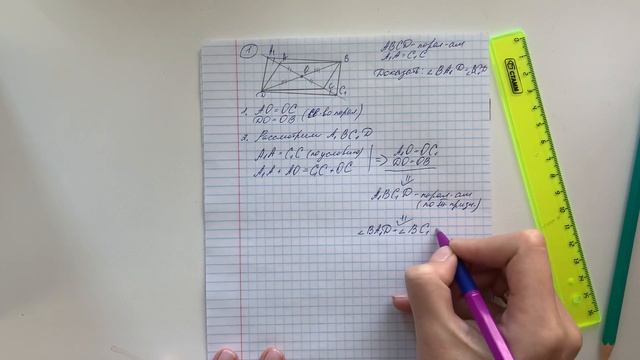 1
A₁ A B
O
D C C₁
ABCD-парал-ам
A₁A=C₁C
Доказать: ∠BA₁D=∠BC₁D
1. AO=OC
DO=OB (св-во парал)
2. Рассмотрим A₁BC₁D
A₁A=C₁C (по условию)
A₁A+AO=C₁C+OC
=> A₁O=OC₁
DO=OB
⇓
A₁BC₁D-парал-ам
(по призн.)
⇓
∠BA₁D=∠BC₁
СТАММ